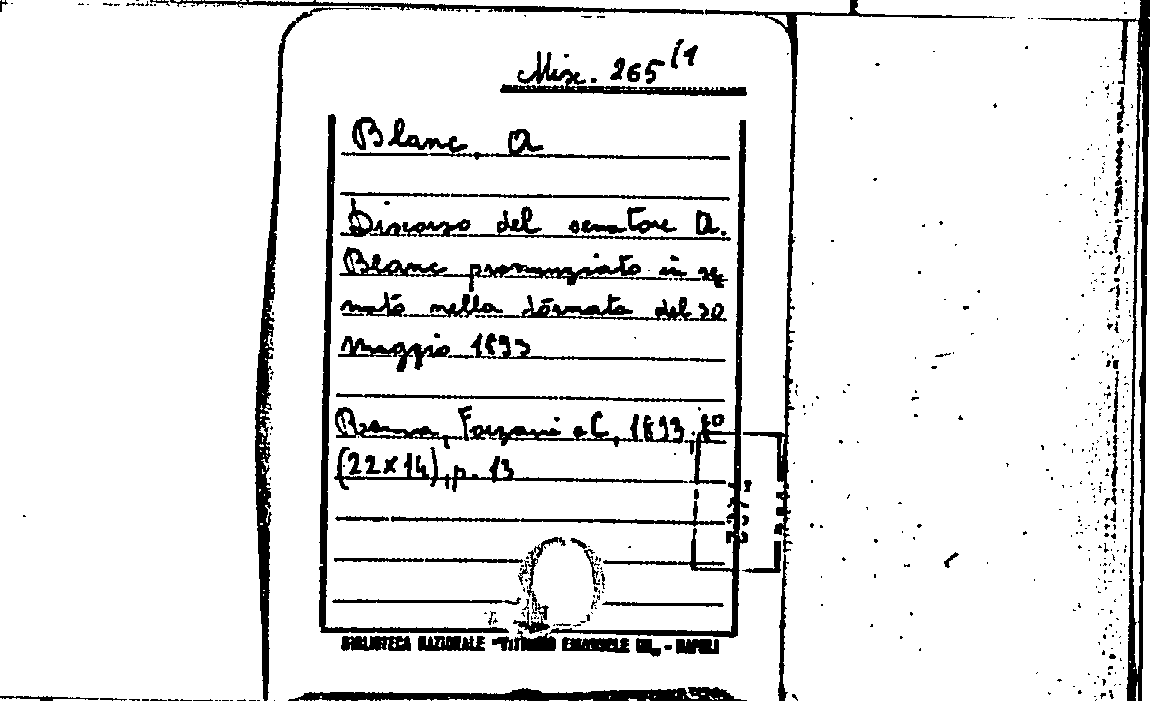 Misc. 265 (1
Blanc, A
Discorso del senatore A.
Blanc pronunziato in se
nato nella tornata del 20
maggio 1893
Roma, Forzani e C, 1893 8º
(22x14), p. 13
BIBLIOTECA NAZIONALE "VITTORIO EMANUELE III" - NAPOLI